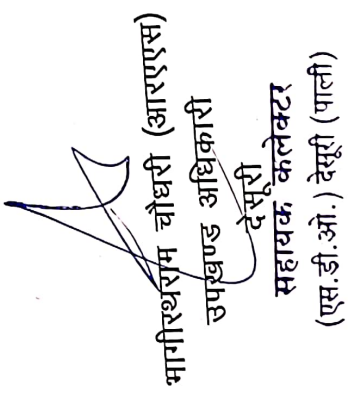 भागीरथराम चौधरी (आरएएस)
उपखण्ड अधिकारी
देसूरी
सहायक कलेक्टर
(एस.डी.ओ.) देसूरी (पाली)